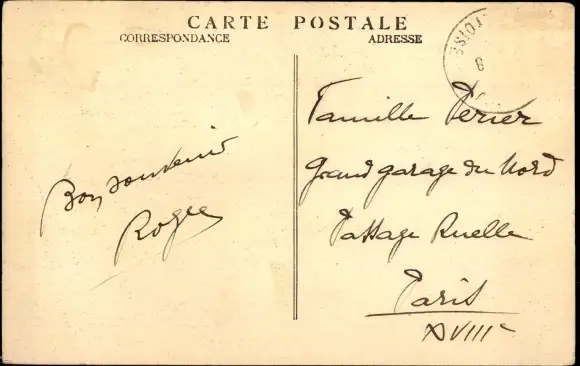 CARTE POSTALE
CORRESPONDANCE
ADRESSE
Bon souvenir
Roger
Famille Périer
Grand garage du Nord
Passage Ruelle
Paris
XVIIIe